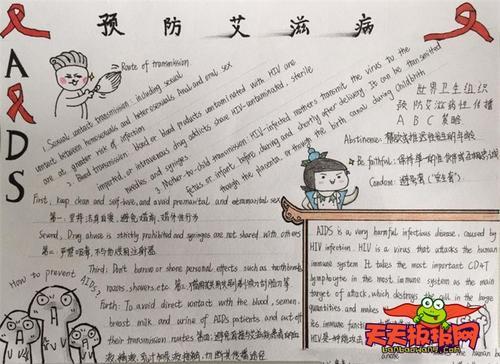 预防艾滋病
AIDS
Route of transmission:
1. Sexual contact transmission: including sexual
contact between homosexuals and heterosexuals. Anal and oral sex
are at greater risk of infection
Blood transmission: blood or blood products contaminated with HIV are
imported, or intravenous drug addicts show HIV-contaminated, sterile
needles and syringes
3. Mother-to-child transmission: HIV-infected mothers transmit the virus to the
fetus or infant before, during and shortly after delivery. It can be transmitted
through the placenta, or through the birth canal during childbirth
世界卫生组织
预防艾滋病性传播
ABC策略
Abstinence:
Be faithful: 保持单一的性
Condom: 避孕套("安全套")
First, keep clean and self-love, and avoid premarital and extramarital sex
第一,
Second, Drug abuse is strictly prohibited and syringes are not shared with others
第二,严禁吸毒,不与他人共用注射器
How to prevent
AIDS?
Third: Don't borrow or share personal effects such as toothbrush,
razors, shavers, etc.
Forth: To avoid direct contact with the blood, semen,
breast milk and urine of AIDS patients and cut off
their transmission routes 第四:避免直接与艾滋病患者的血
AIDS is a very harmful infectious disease, caused by
HIV infection. HIV is a virus that attacks the human
immune system. It takes the most important CD4T
lymphocyte in the most immune system as the main
target of attack, which destroys
quantities and makes
its immune function
天天板报网